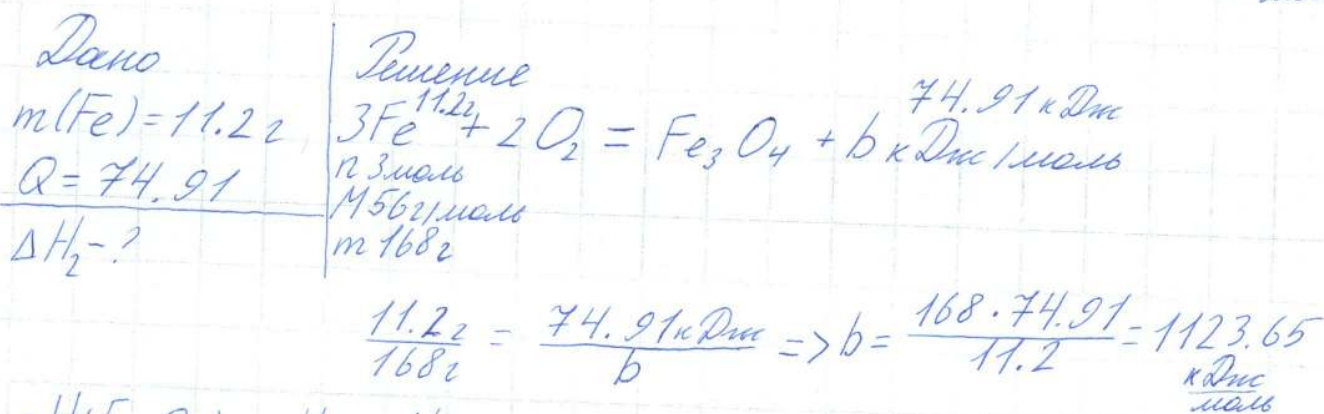 Дано
m(Fe)=11.2г
Q=74.91
ΔH₂-?
Решение
11.2г 74.91 кДж
3Fe + 2O₂ = Fe₃O₄ + b кДж/моль
n 3моль
M 56г/моль
m 168г
11.2г/168г = 74.91кДж/b => b = 168·74.91/11.2 = 1123.65 кДж/моль